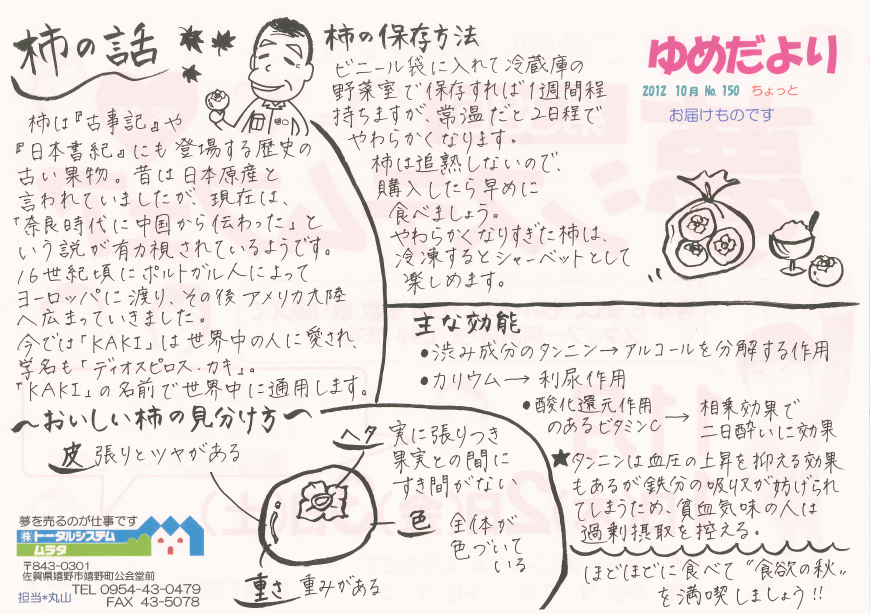 柿の話
柿は『古事記』や
『日本書紀』にも登場する歴史の
古い果物。昔は日本原産と
言われていましたが、現在は、
「奈良時代に中国から伝わった」と
いう説が有力視されているようです。
16世紀頃にポルトガル人によって
ヨーロッパに渡り、その後アメリカ大陸
へ広まっていきました。
今では「KAKI」は世界中の人に愛され、
学名も「ディオスピロス・カキ」。
「KAKI」の名前で世界中に通用します。
柿の保存方法
ビニール袋に入れて冷蔵庫の
野菜室で保存すれば1週間程
持ちますが、常温だと2日程で
やわらかくなります。
柿は追熟しないので、
購入したら早めに
食べましょう。
やわらかくなりすぎた柿は、
冷凍するとシャーベットとして
楽しめます。
ゆめだより
2012 10月 No.150 ちょっと
お届けものです
主な効能
•渋み成分のタンニン→アルコールを分解する作用
•カリウム→利尿作用
•酸化還元作用
のあるビタミンC
→相乗効果で
二日酔いに効果
★タンニンは血圧の上昇を抑える効果
もあるが鉄分の吸収が妨げられ
てしまうため、貧血気味の人は
過剰摂取を控える。
ほどほどに食べて"食欲の秋"
を満喫しましょう!!
〜おいしい柿の見分け方〜
皮 張りとツヤがある
ヘタ 実に張りつき
果実との間に
すき間がない
色 全体が
色づいて
いる
重さ 重みがある
夢を売るのが仕事です
㈱トータルシステム
ムラタ
〒843-0301
佐賀県嬉野市嬉野町公会堂前
TEL 0954-43-0479
FAX 43-5078
担当*丸山